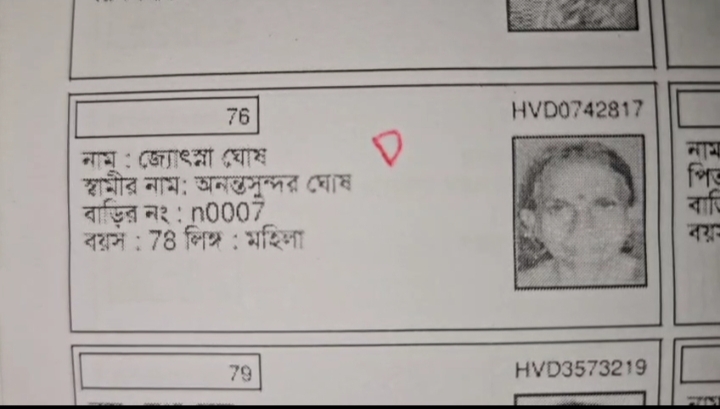 76
HVD0742817
D
নাম : জ্যোৎস্না ঘোষ
স্বামীর নাম: অনন্তসুন্দর ঘোষ
বাড়ির নং : n0007
বয়স : 78 লিঙ্গ : মহিলা
নাম
বাড়ি
বয়স
79
HVD3573219